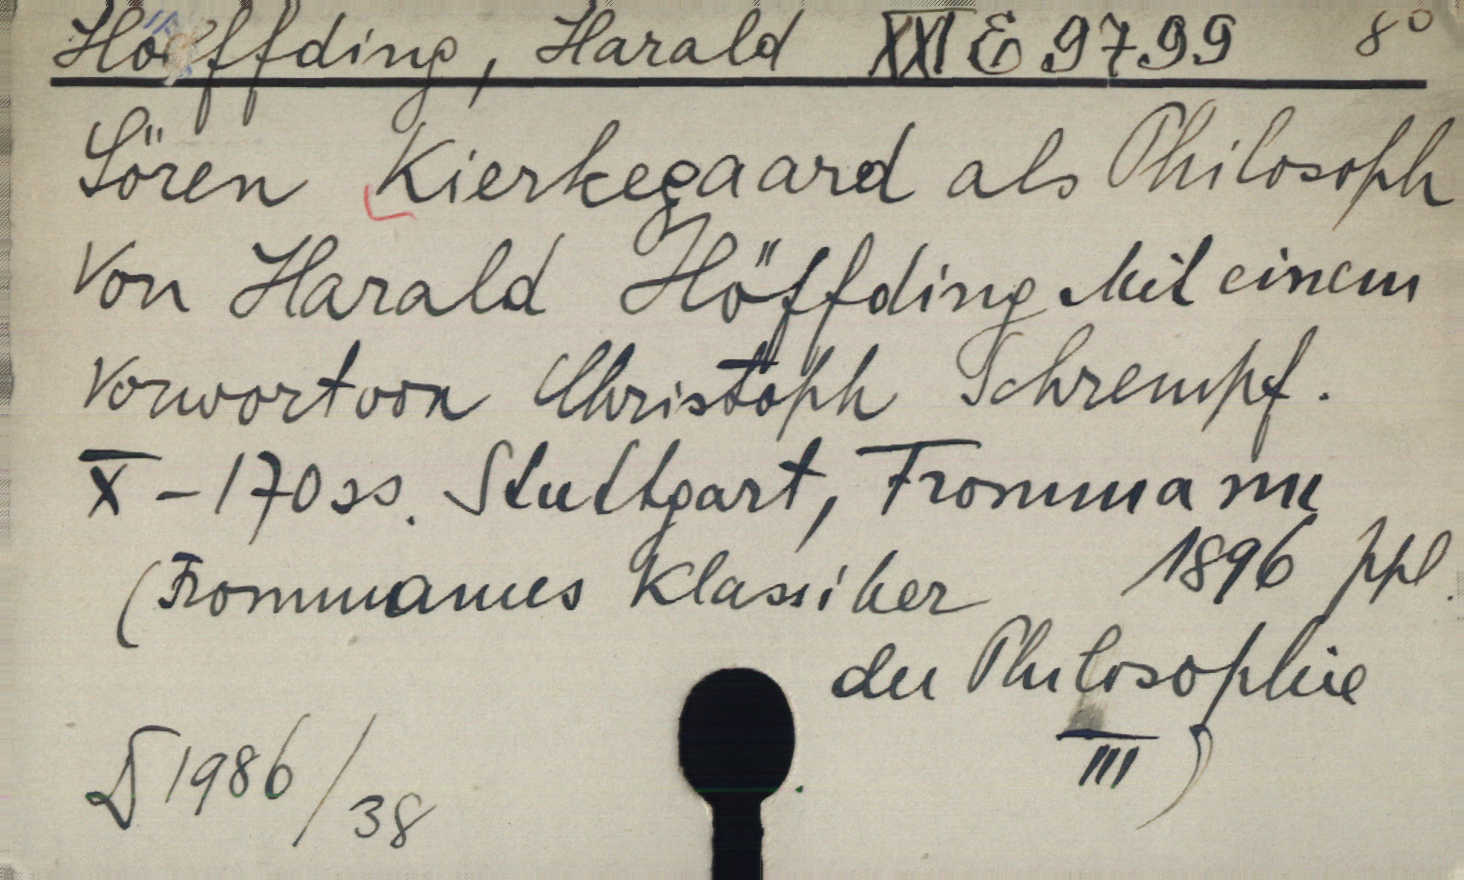 Höffding, Harald XXI E 9799 8°
Sören Kierkegaard als Philosoph
Von Harald Höffding Mit einem
Vorwort von Christoph Schrempf.
X - 170 ss. Stuttgart, Frommann
1896 ppl.
(Frommanns Klassiker
der Philosophie
III)
D 1986/38